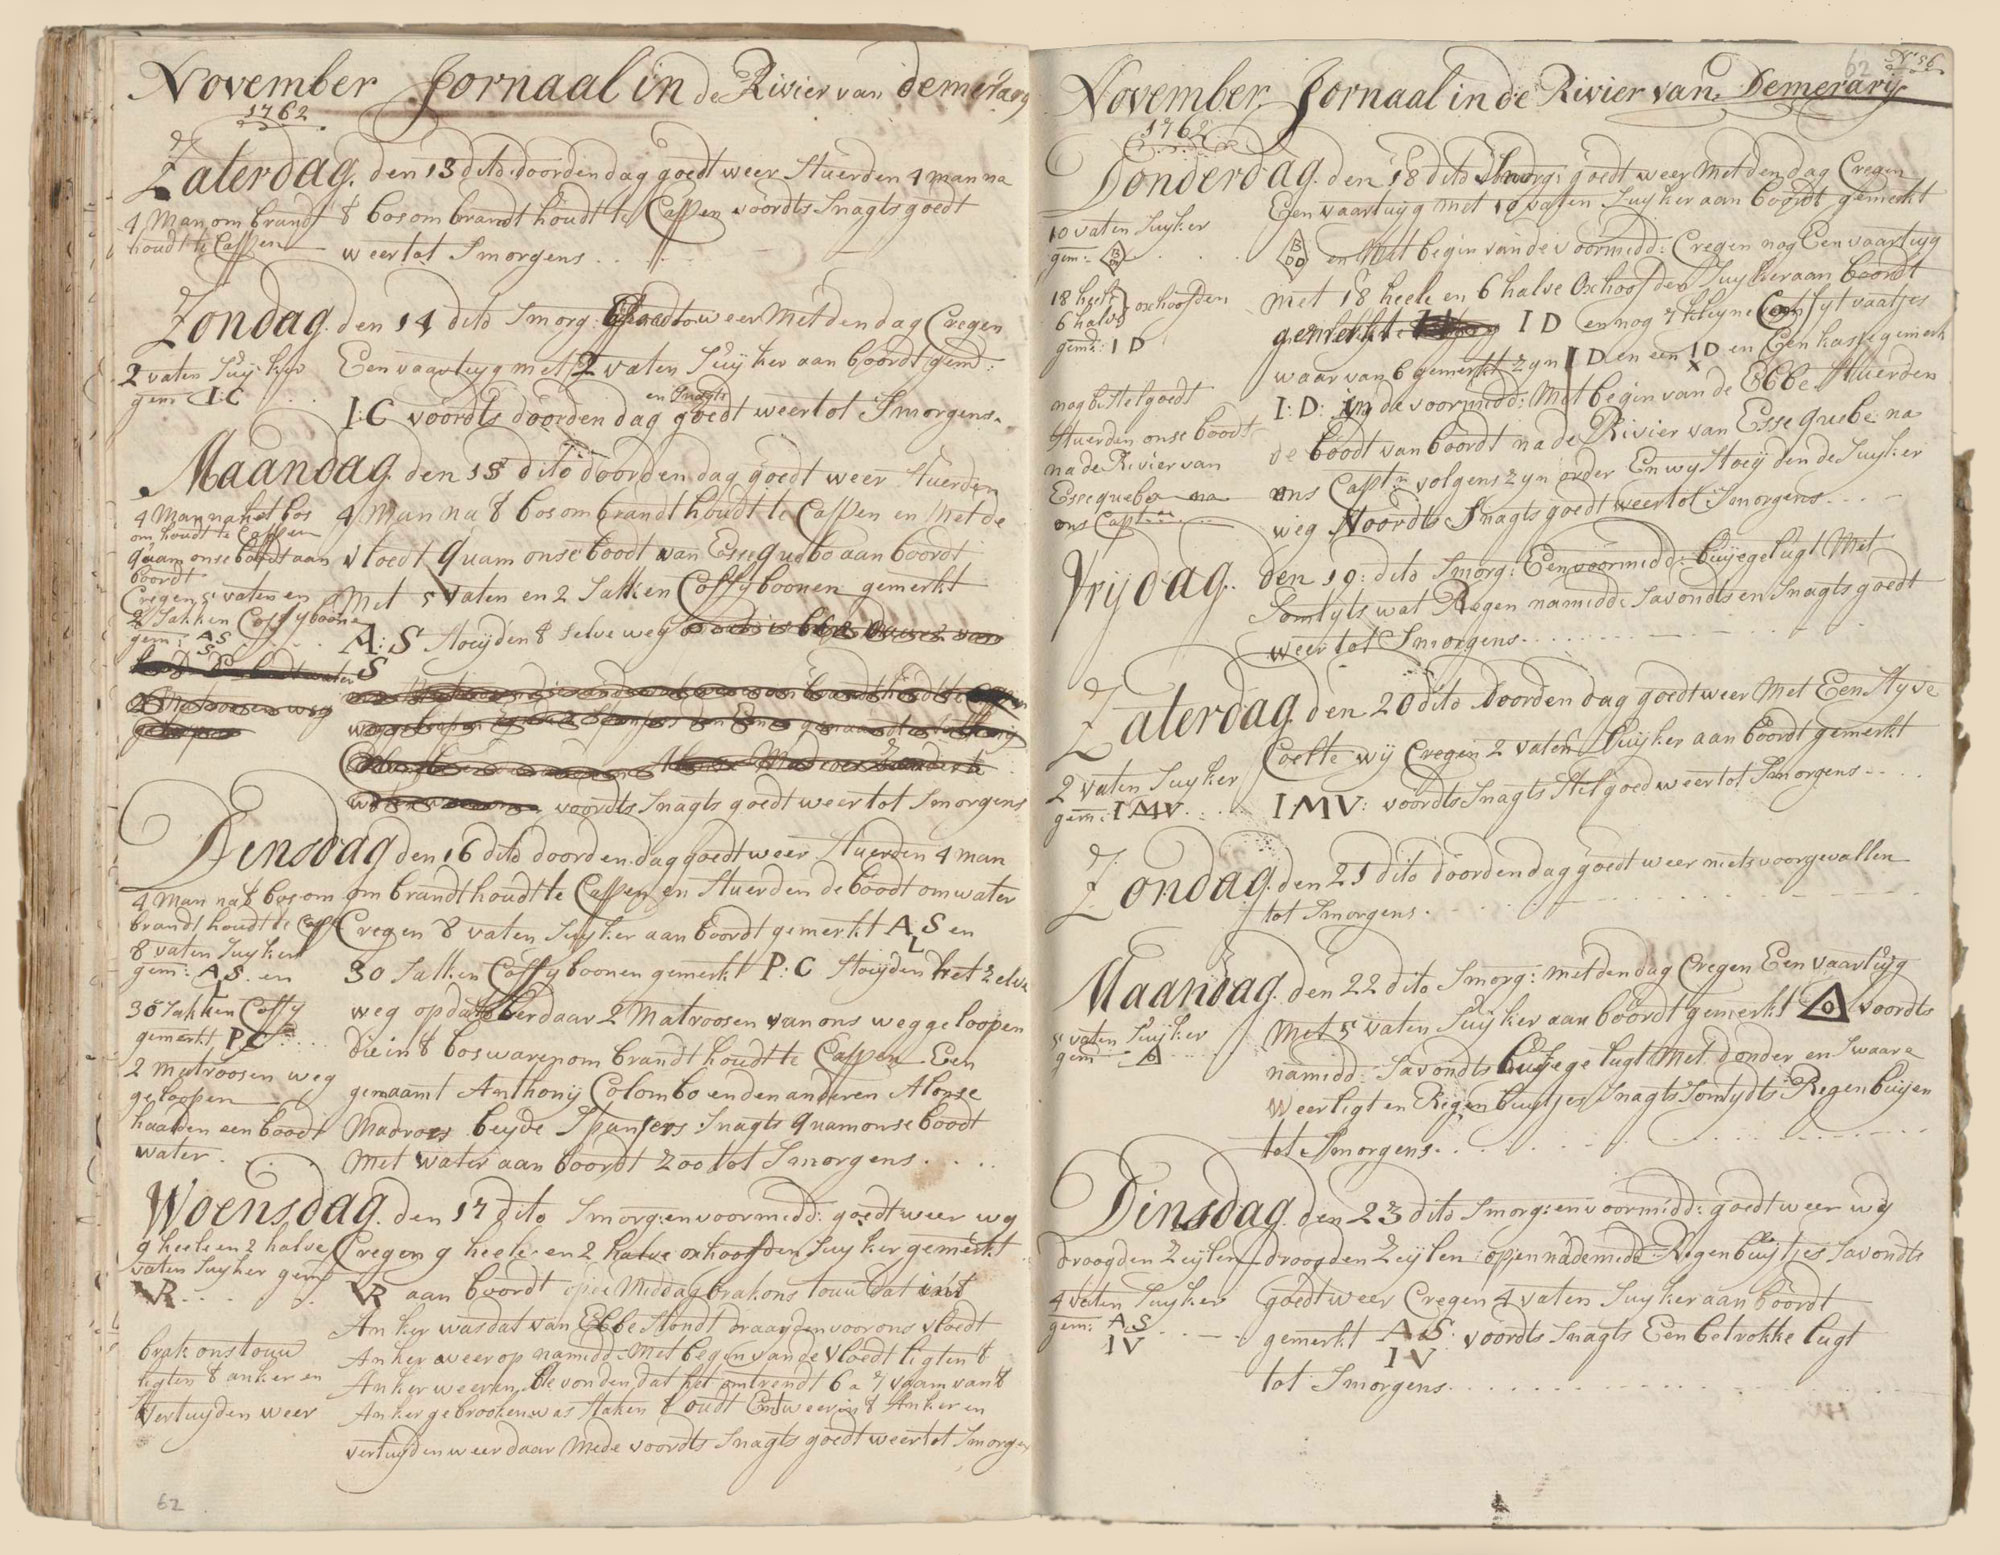 November Jornaal in de Rivier van demerary
1762
Zaterdag. den 13 dito doorden dag goedt weer stuerden 4 man na
4 Man om brandt
houdt te Cappen
8 bos om brandt houdt te Cappen voordts Snagts goedt
weer tot Smorgens . .
Zondag. den 14 dito Smorg: goedt weer Met den dag Cregen
2 vaten Suijker
gem I:C
Een vaartuyg met 2 vaten Suijker aan boordt gem:
en Snagts
I:C voordts doorden dag goedt weer tot Smorgens.
Maandag. den 15 dito doorden dag goedt weer stuerden
4 Man na het bos
om houdt te Cappen
quam onse boodt aan
boordt
Cregen 5 vaten en
2 Sakken Coffyboone
gem: AS
S
4 Man na 8 bos om brandt houdt te Cappen en Met de
vloedt quam onse boodt van Essequebo aan boordt
Met 5 vaten en 2 Sakken Coffyboonen gemerkt
A:S stoeijden 8 selve weg
S
voordts Snagts goedt weer tot Smorgens
Dinsdag den 16 dito doorden dag goedt weer stuerden 4 man
4 Man na 8 bos om
brandt houdt te Capp
8 vaten Suyker
gem: AS en
L
30 Sakken Coffy
gemerkt P:C
2 matroosen weg
geloopen
haalden een boodt
water . .
om brandt houdt te Cappen en stuerden de boodt om water
Cregen 8 vaten Suyker aan boordt gemerkt AS en
L
30 Sakken Coffyboonen gemerkt P:C stoeijden het zelve
weg op dato Verdaar 2 Matroosen van ons weg geloopen
die in 8 bos waren om brandt houdt te Cappen Een
genaamt Anthonij Colombo en den anderen Alonse
Madroes beyde Spanjers Snagts quam onse boodt
Met water aan boordt zoo tot Smorgens . . . .
Woensdag. den 17 dito Smorg: en voormidd: goedt weer wy
9 heele en 2 halve
vaten Suyker gem
VR . . .
brak ons touw
ligten 8 anker en
Vertuyden weer
Cregen 9 heele en 2 halve oxhoofden Suyker gemerkt
VR aan boordt op de Middag brak ons touw dat in't
Anker was dat van Ebbe stondt draaiden voor ons vloedt
Anker weer op namidd: Met begin van de vloedt ligten 8
Anker weer en bevonden dat het omtrendt 6 a 7 vaam van 8
Anker gebrooken was staken 8 oudt Endt weer in 8 Anker en
vertuyden weer daar Mede voordts Snagts goedt weer tot Smorgen
62
62 N: 56
November Jornaal in de Rivier van Demerary
1762
Donderdag. den 18 dito Smorg: goedt weer Met den dag Cregen
10 vaten Suyker
gem: B DD
18 heele
6 halve oxhoofden
gem: I D
nog bestelgoedt
stuerden onse boodt
na de Rivier van
Essequebo na
ons Capten
Een vaartuyg met 10 vaten Suyker aan boordt gemerkt
B DD en Met begin van de voormidd: Cregen nog Een vaartuyg
met 18 heele en 6 halve Oxhoofden Suyker aan boordt
gemerkt I D en nog 7 kleyne Confyt vaatjes
waar van 6 gemerkt zyn I D en een I D en Een kasse gemerk
X
I:D: In de voormidd: Met begin van de Ebbe stuerden
de boodt van boordt na de Rivier van Essequebe: na
ons Captn volgens zyn order En wy stoeijden de Suyker
weg Voordts Snagts goedt weer tot Smorgens . . . .
Vrijdag. den 19: dito Smorg: En voormidd: buijege lugt Met
Somtyts wat Regen namidd: Savondts en Snagts goedt
weer tot Smorgens . . . . . .
Zaterdag. den 20 dito doorden dag goedt weer Met Een styve
2 vaten Suyker
gem: I:MV . . .
Coelte wij Cregen 2 vaten Suyker aan boordt gemerkt
I:MV: voordts Snagts stil goed weer tot Smorgens . . .
Zondag. den 21 dito doorden dag goedt weer niets voorgevallen
tot Smorgens . . . . . .
Maandag. den 22 dito Smorg: met den dag Cregen Een vaartuyg
5 vaten Suyker
gem
Met 5 vaten Suyker aan boordt gemerkt voordts
namidd: Savondts buyege lugt Met donder en Swaare
Weerligt en Regen buytjes Snagts Somtydts Regen buijen
tot Smorgens . . . . . .
Dinsdag. den 23 dito Smorg: en voormidd: goedt weer wy
droogden Zeylen
4 vaten Suyker
gem: AS
IV
droogden Zeylen: op en nademidd: Regen buytjes Savondts
goedt weer Cregen 4 vaten Suyker aan boordt
gemerkt AS: voordts Snagts Een betrokke lugt
IV
tot Smorgens . . . . . .